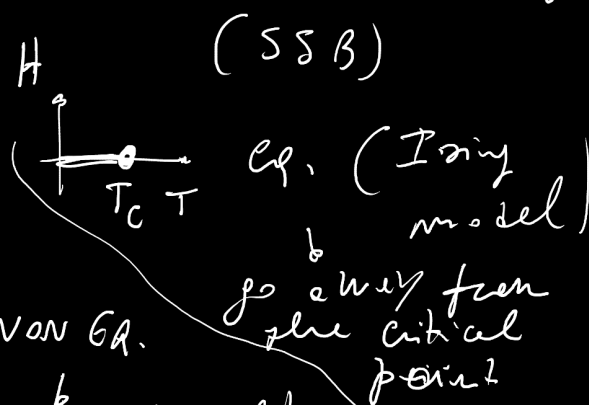 (SSB)
H
T_C T
eq. (Ising
model)
go away from
the critical
point
NON EQ.